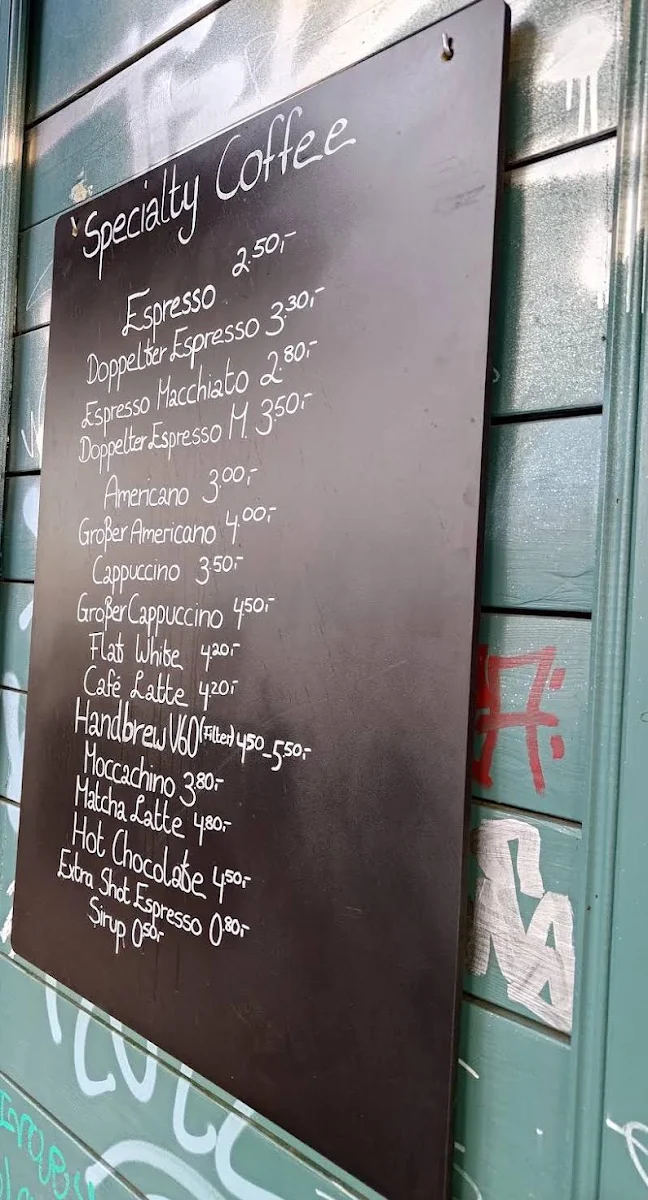 Specialty Coffee
Espresso 2.50,-
Doppelter Espresso 3.30,-
Espresso Macchiato 2.80,-
Doppelter Espresso M. 3.50,-
Americano 3.00,-
Großer Americano 4.00,-
Cappuccino 3.50,-
Großer Cappuccino 4.50,-
Flat White 4.20,-
Café Latte 4.20,-
Handbrew V60 (Filter) 4.50 - 5.50,-
Moccachino 3.80,-
Matcha Latte 4.80,-
Hot Chocolate 4.50,-
Extra Shot Espresso 0.80,-
Sirup 0.50,-